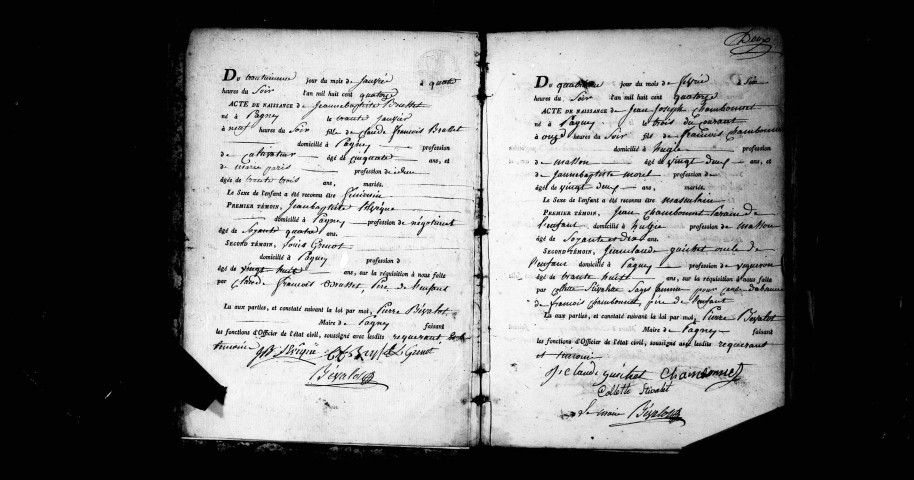 Du trentunieme jour du mois de janvié à quatre
heures du Soir l'an mil huit cent quatorze
ACTE DE NAISSANCE de jeannebaptiste Brullet
né à Pagney le trente janvié
à neuf heures du Soir fils de Claude françois Brullet
domicilié à Pagney profession
de cultivateur âgé de cinquante ans, et
de marie profession de
âgée de trente trois ans, mariés.
Le Sexe de l'enfant a été reconnu être feminin
PREMIER TÉMOIN, Jeanbaptiste
domicilié à Pagney profession de négotiant
âgé de Soyante quatre ans.
SECOND TÉMOIN, Louis Grenot
domicilié à Pagney profession d
âgé de vingt huit ans, sur la réquisition à nous faite
par Claude françois Brullet, Père de l'enfant
Lu aux parties, et constaté suivant la loi par moi, Pierre Bévalot
Maire de Pagney faisant
les fonctions d'Officier de l'état civil, soussigné avec lesdits requerant
temoins
L Grenot
Bévalot
Deux
Du quatrieme jour du mois de fevrié à
heures du Soir l'an mil huit cent quatorze
ACTE DE NAISSANCE de Jean Joseph Chambonnet
né à Pagney le trois du courant
à onze heures du Soir fils de françois Chambonnet
domicilié à hugie profession
de masson âgé de vingt neuf ans, et
de jannebaptiste morel profession de
âgée de vingt neuf ans, mariés.
Le Sexe de l'enfant a été reconnu être masculin
PREMIER TÉMOIN, Jean Chambonnet Parain de
l'enfant domicilié à hugie profession de masson
âgé de Soyante et dix ans.
SECOND TÉMOIN, Jeanclaude guichet oncle de
l'enfant domicilié à Pagney profession de vigneron
âgé de trente huit ans, sur la réquisition à nous faite
par collette Stivalet Sage femme pour cause d'absence
de françois Chambonnet, père de l'enfant
Lu aux parties, et constaté suivant la loi par moi, Pierre Bévalot
Maire de Pagney faisant
les fonctions d'Officier de l'état civil, soussigné avec lesdits requerant
et temoins
J Claude guichet Chambonnet
Collette Stivalet
Le maire Bévalot